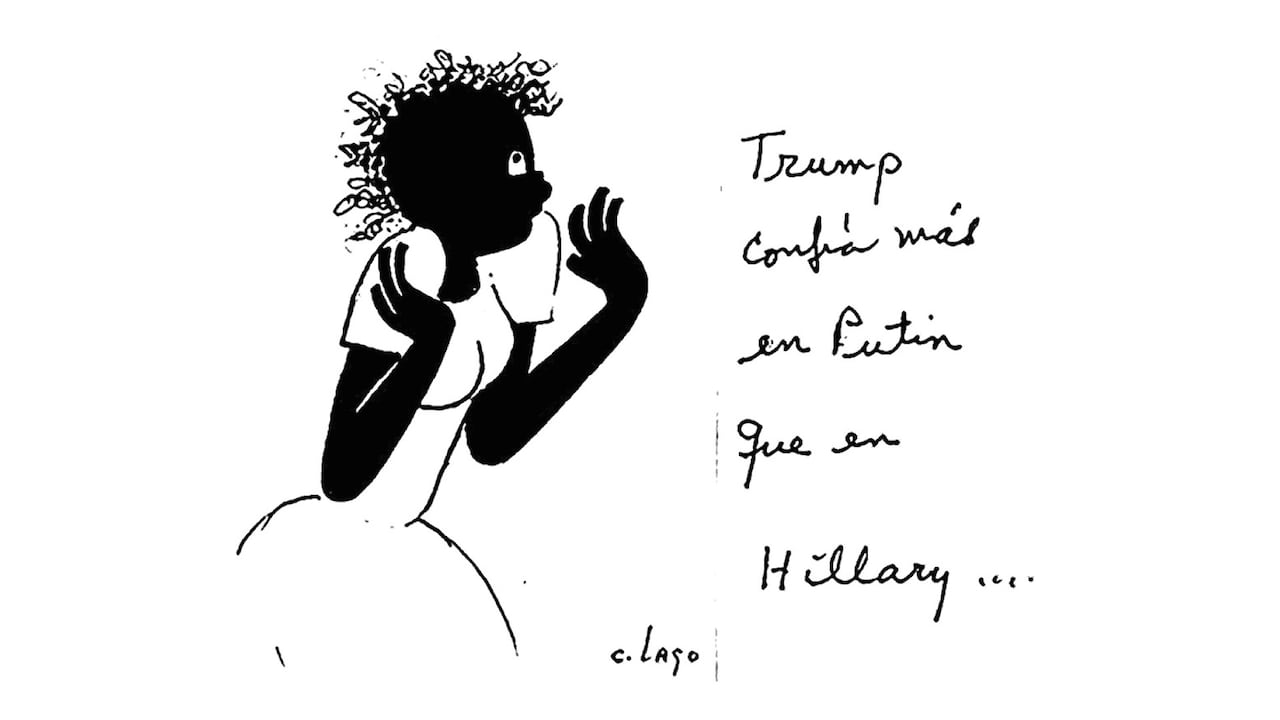 Trump
confía más
en Putin
que en
Hillary ....
c. Lago